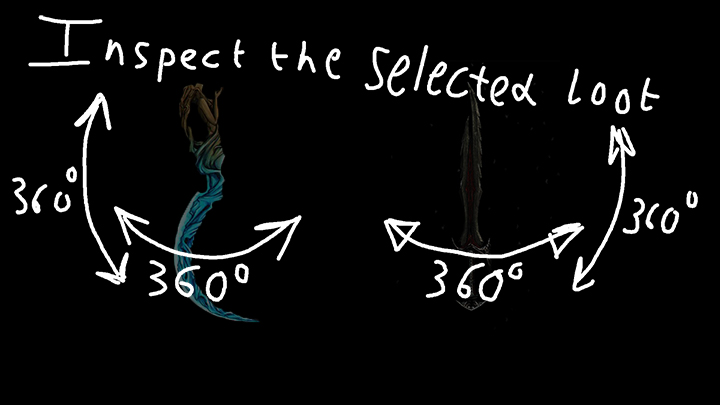 Inspect the selected loot
360°
360°
360°
360°